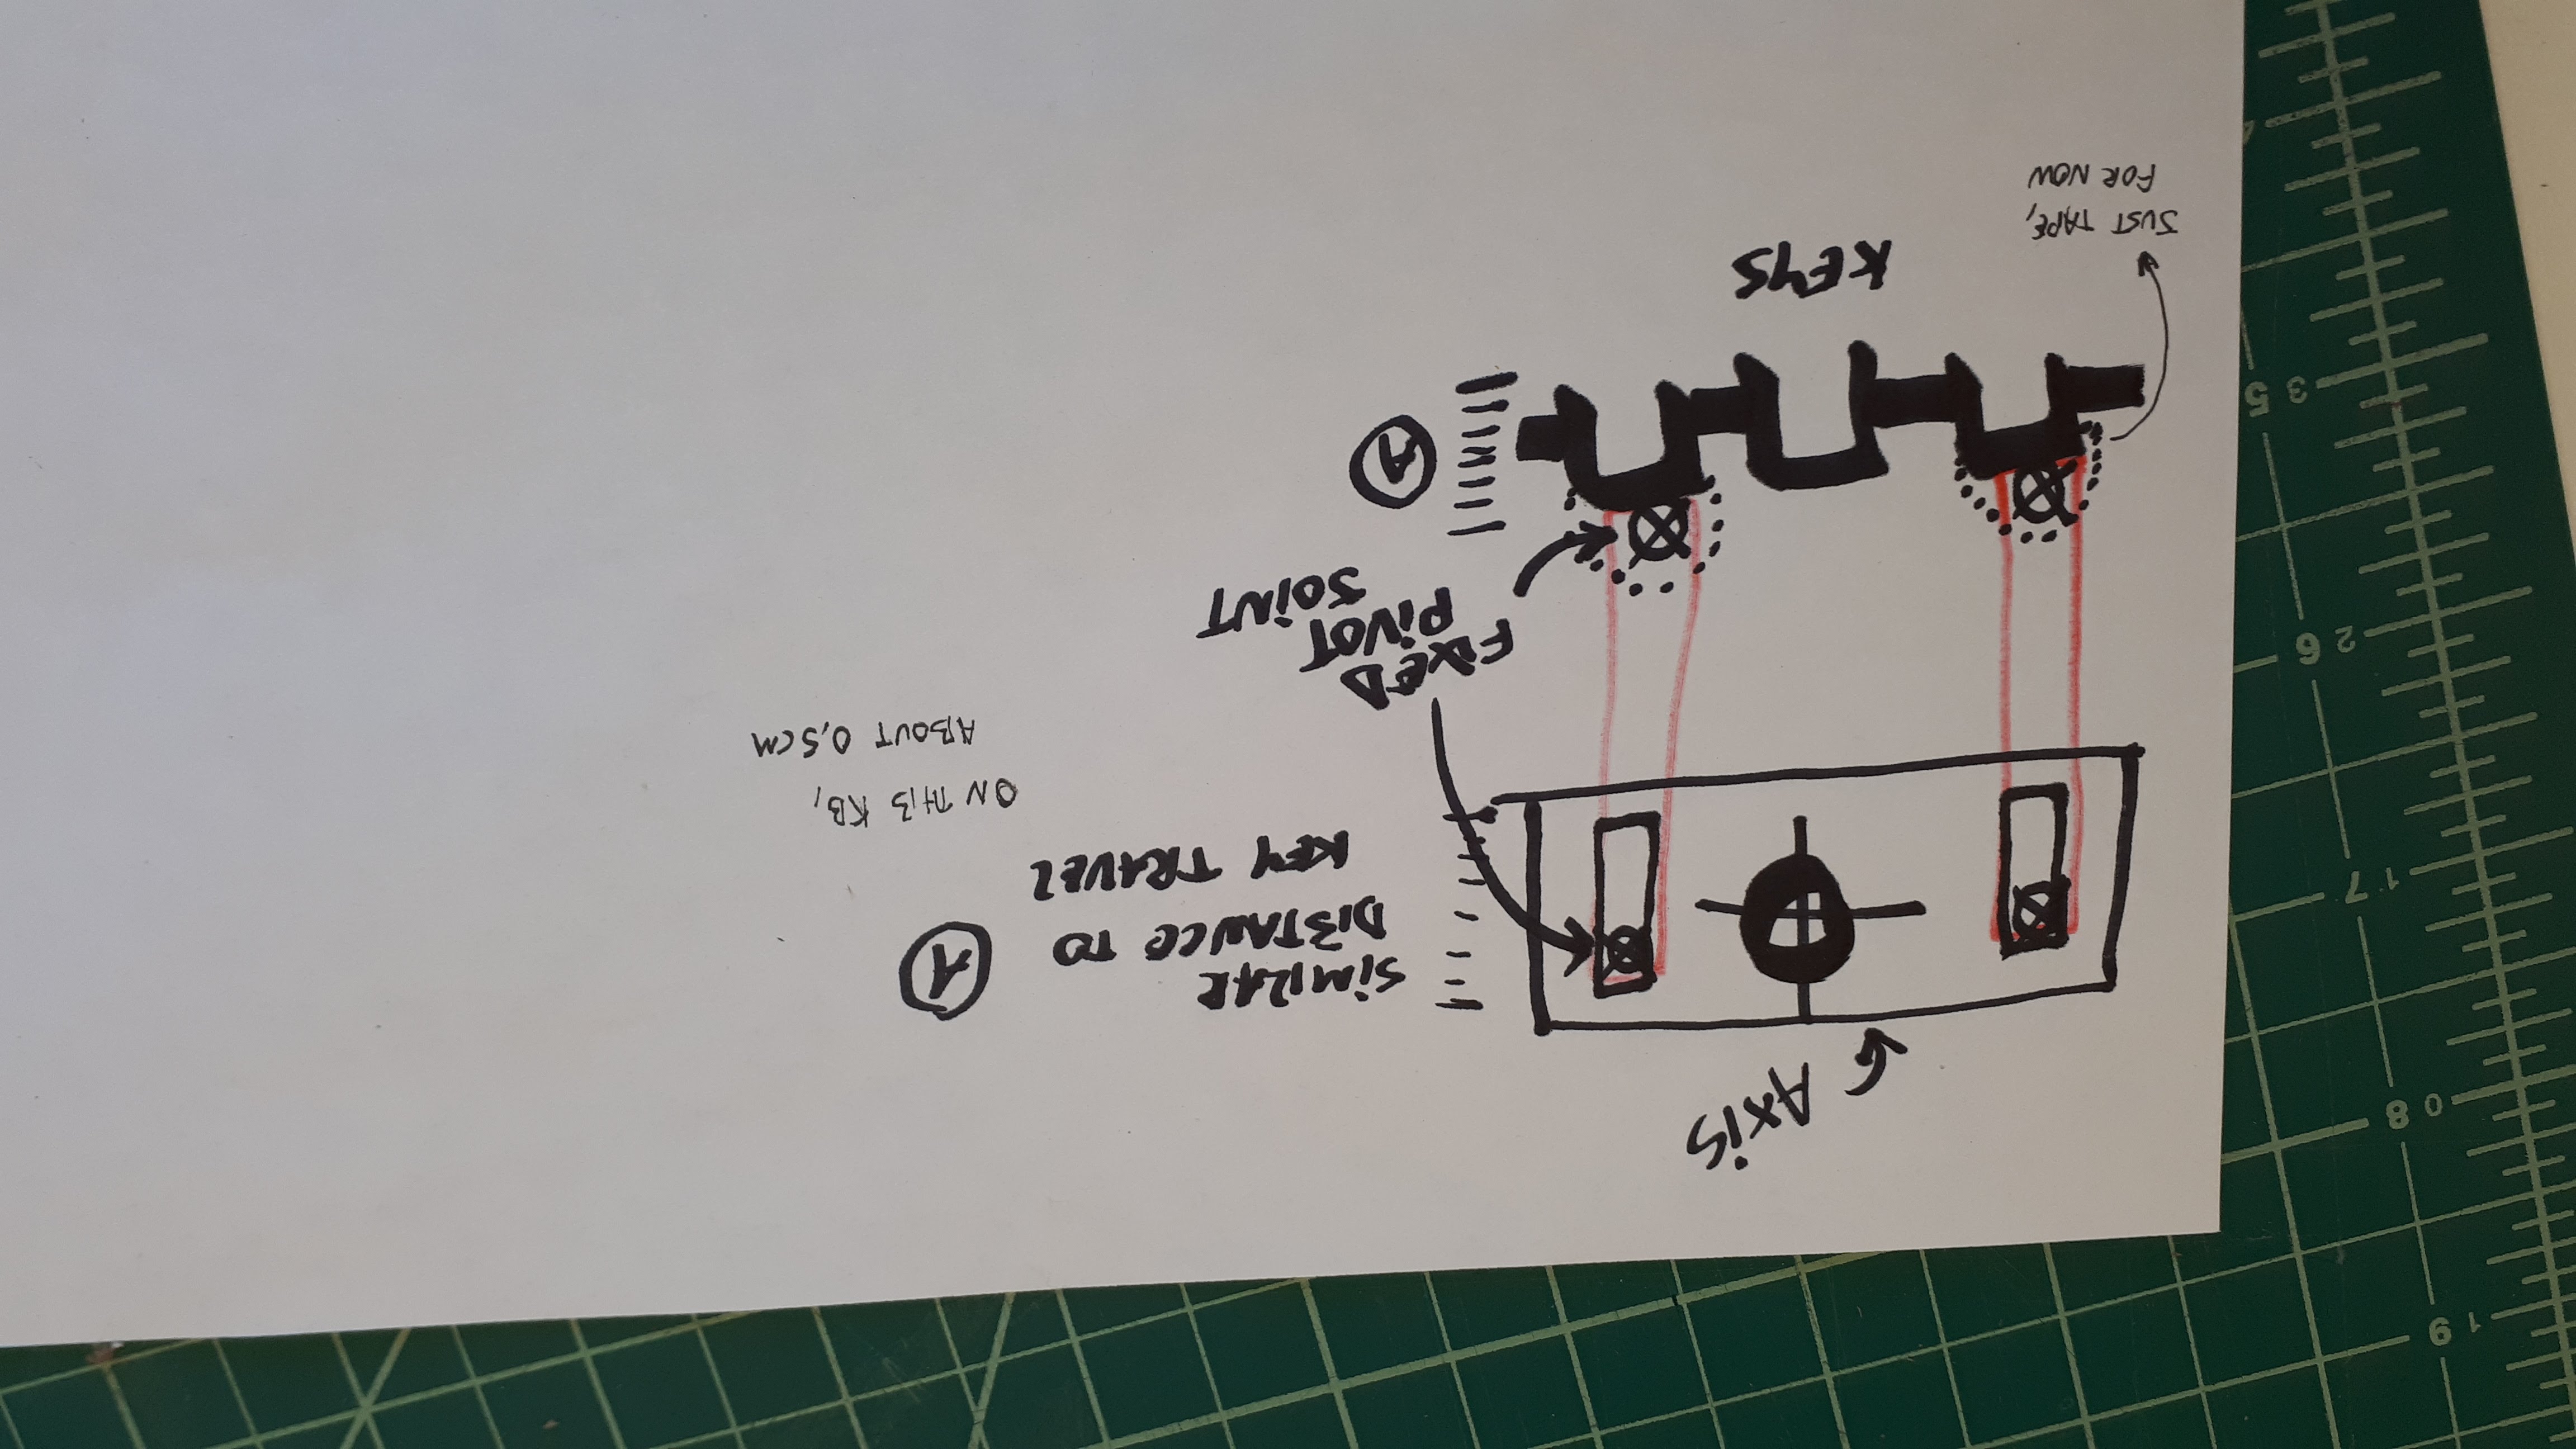 19
08
17
26
35
Axis
SIMILAR
DISTANCE TO
KEY TRAVEL
A
ON THIS KB,
ABOUT 0,5CM
FIXED
PIVOT
JOINT
A
KEYS
JUST TAPE,
FOR NOW